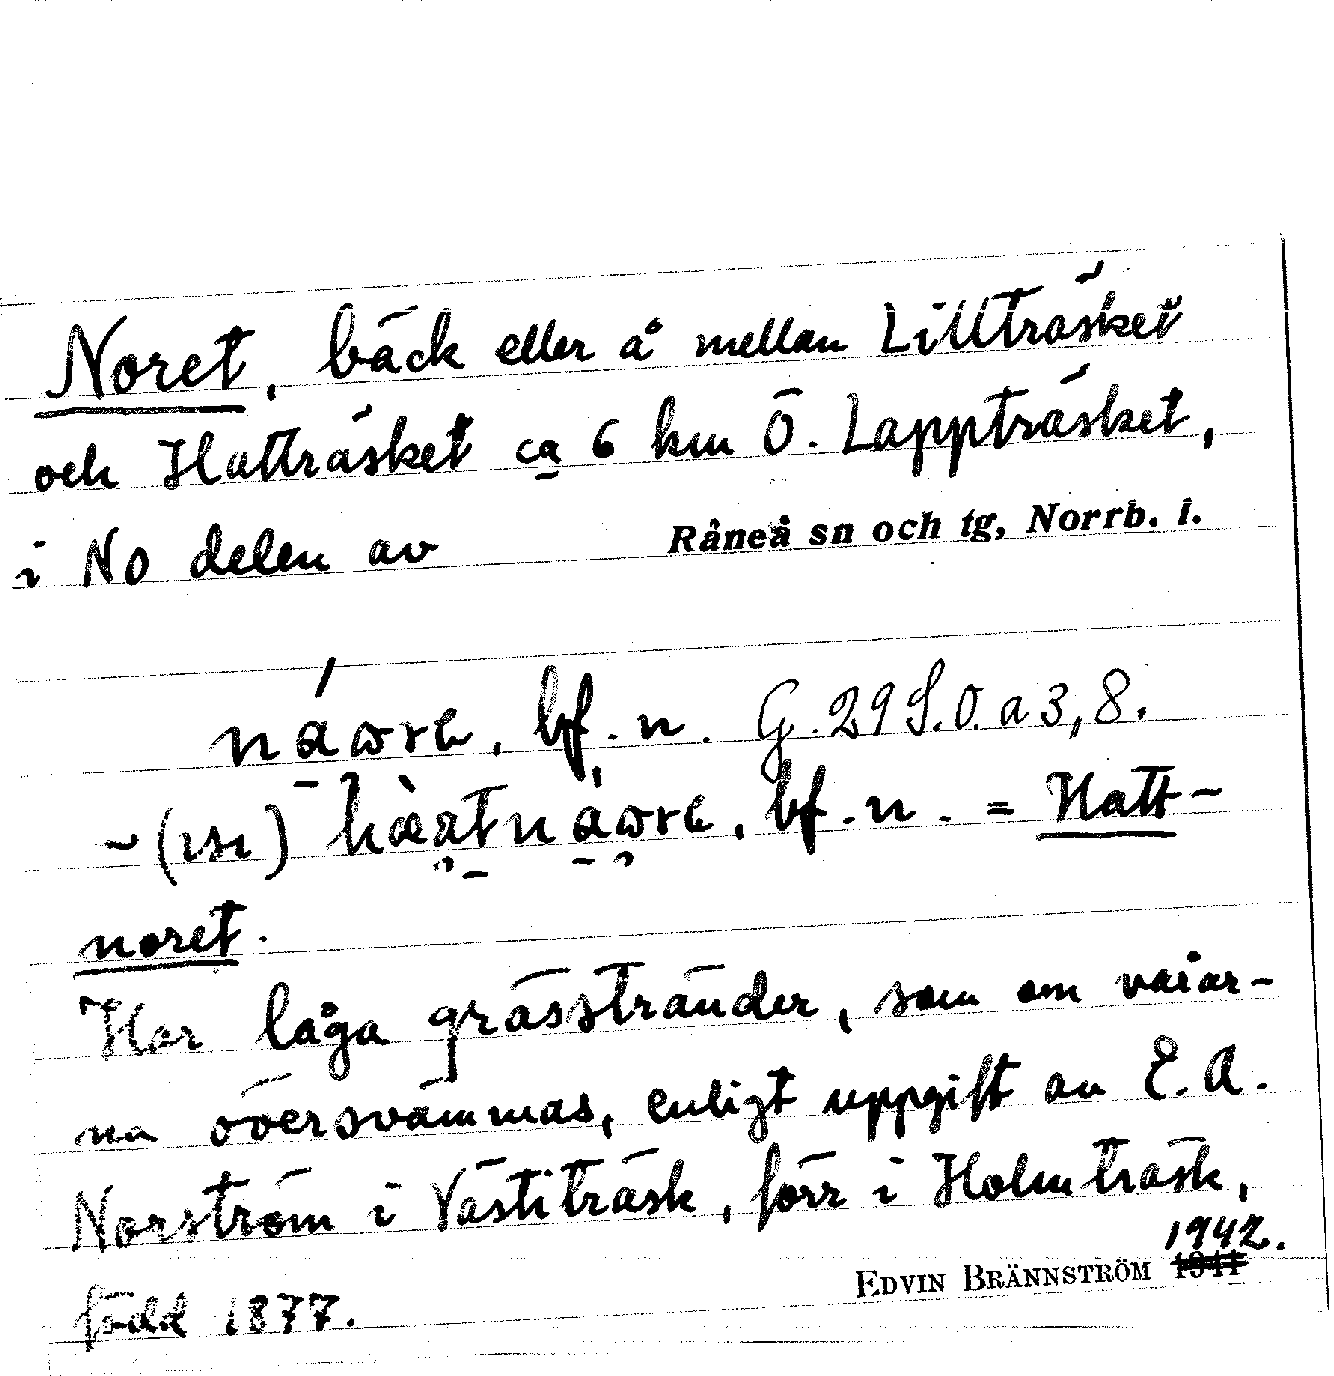 Noret, bäck eller å mellan Lillträsket
och Hatträsket ca 6 km Ö. Lappträsket,
i NO delen av Råneå sn och tg, Norrb. l.
bf. n. G. 29 S.O. a 3, 8.
~ bf. n. = Hatt-
noret.
Har låga grässtränder, som om vårar-
na översvämmas, enligt uppgift av E. A.
Norström i Västiträsk, förr i Holmträsk,
född 1877.
EDVIN BRÄNNSTRÖM 1942.